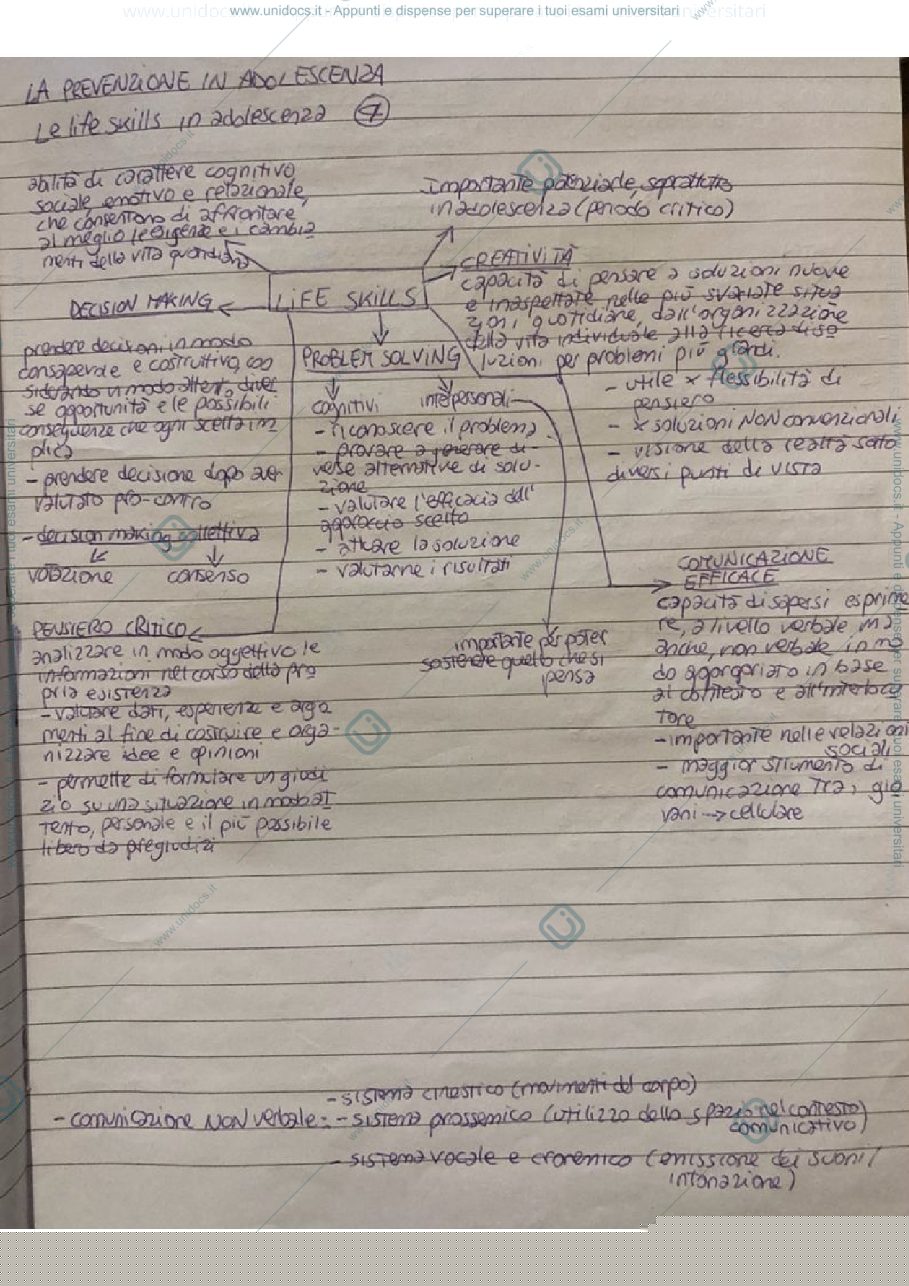 www.unidocs.it - Appunti e dispense per superare i tuoi esami universitari
LA PREVENZIONE IN ADOLESCENZA
Le life skills in adolescenza 7
abilità di carattere cognitivo
sociale, emotivo e relazionale,
che consentono di affrontare
al meglio le esigenze e i cambia
menti della vita quotidiana
Importante potenziarle, soprattutto
in adolescenza (periodo critico)
LIFE SKILLS
DECISION MAKING
prendere decisioni in modo
consapevole e costruttivo, con
siderando in modo attento, diver
se opportunità e le possibili
conseguenze che ogni scelta im
plica
- prendere decisione dopo aver
valutato pro-contro
- decision making collettiva
votazione consenso
PROBLEM SOLVING
cognitivi interpersonali
- riconoscere il problema
- provare a generare di-
verse alternative di solu-
zione
- valutare l'efficacia dell'
approccio scelto
- attuare la soluzione
- valutarne i risultati
importante per poter
sostenere quello che si
pensa
CREATIVITÀ
capacità di pensare a soluzioni nuove
e inaspettate nelle più svariate situa
zioni, quotidiane, dall'organizzazione
della vita individuale alla ricerca di so
luzioni per problemi più grandi.
- utile x flessibilità di
pensiero
- x soluzioni NON convenzionali
- visione della realtà sotto
diversi punti di vista
COMUNICAZIONE
EFFICACE
capacità di sapersi esprime
re, a livello verbale ma
anche, non verbale in mo
do appropriato in base
al contesto e all'interlocu
tore
- importante nelle relazioni
sociali
- maggior strumento di
comunicazione tra i gio
vani → cellulare
PENSIERO CRITICO
analizzare in modo oggettivo le
informazioni nel corso della pro
pria esistenza
- valutare dati, esperienze e argo
menti al fine di costruire e orga-
nizzare idee e opinioni
- permette di formulare un giudi
zio su una situazione in modo at
tento, personale e il più possibile
libero da pregiudizi
- comunicazione NON verbale:
- sistema cinestico (movimenti del corpo)
- sistema prossemico (utilizzo dello spazio nel contesto
comunicativo)
- sistema vocale e cronemico (emissione dei suoni/
intonazione)